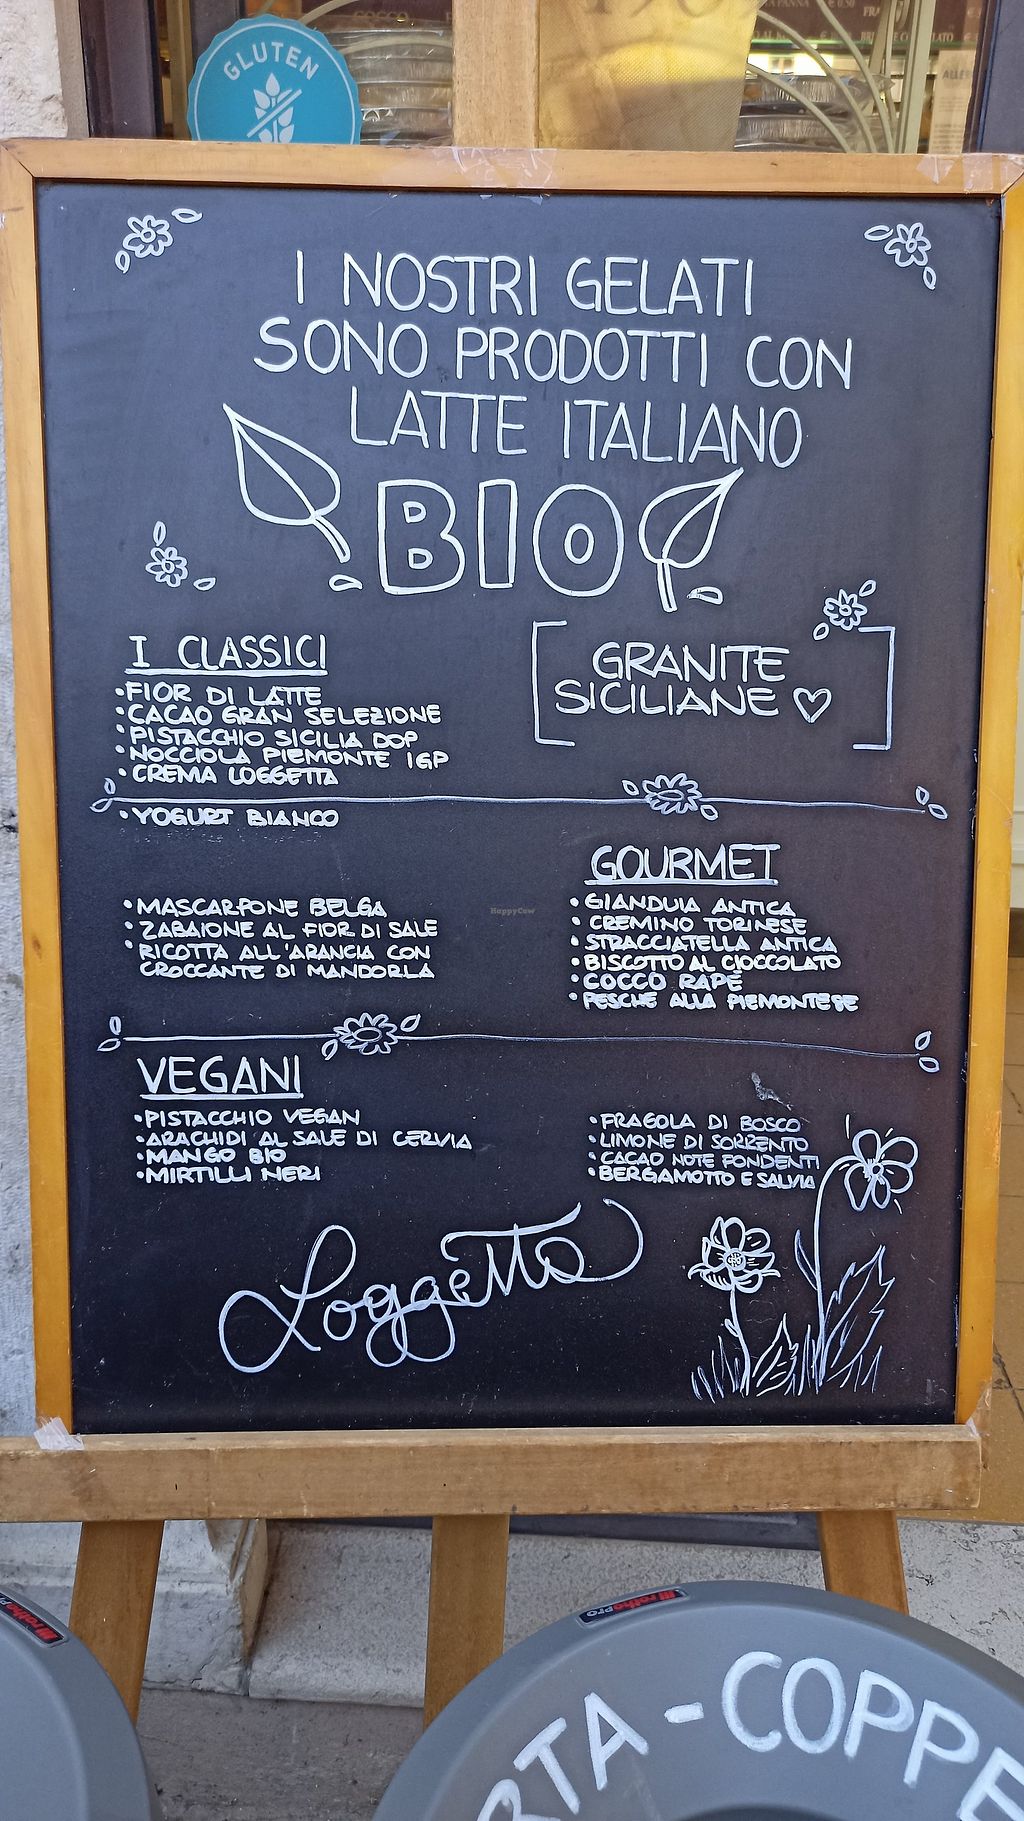 GLUTEN
I NOSTRI GELATI
SONO PRODOTTI CON
LATTE ITALIANO
BIO
I CLASSICI
•FIOR DI LATTE
•CACAO GRAN SELEZIONE
•PISTACCHIO SICILIA DOP
•NOCCIOLA PIEMONTE IGP
•CREMA LOGGETTA
•YOGURT BIANCO
GRANITE
SICILIANE ♡
•MASCARPONE BELGA
•ZABAIONE AL FIOR DI SALE
•RICOTTA ALL'ARANCIA CON
CROCCANTE DI MANDORLA
GOURMET
•GIANDUIA ANTICA
•CREMINO TORINESE
•STRACCIATELLA ANTICA
•BISCOTTO AL CIOCCOLATO
•COCCO RAPÉ
•PESCHE ALLA PIEMONTESE
VEGANI
•PISTACCHIO VEGAN
•ARACHIDI AL SALE DI CERVIA
•MANGO BIO
•MIRTILLI NERI
•FRAGOLA DI BOSCO
•LIMONE DI SORRENTO
•CACAO NOTE FONDENTI
•BERGAMOTTO E SALVIA
Loggetta
HappyCow
rothopro
RTA-COPPE